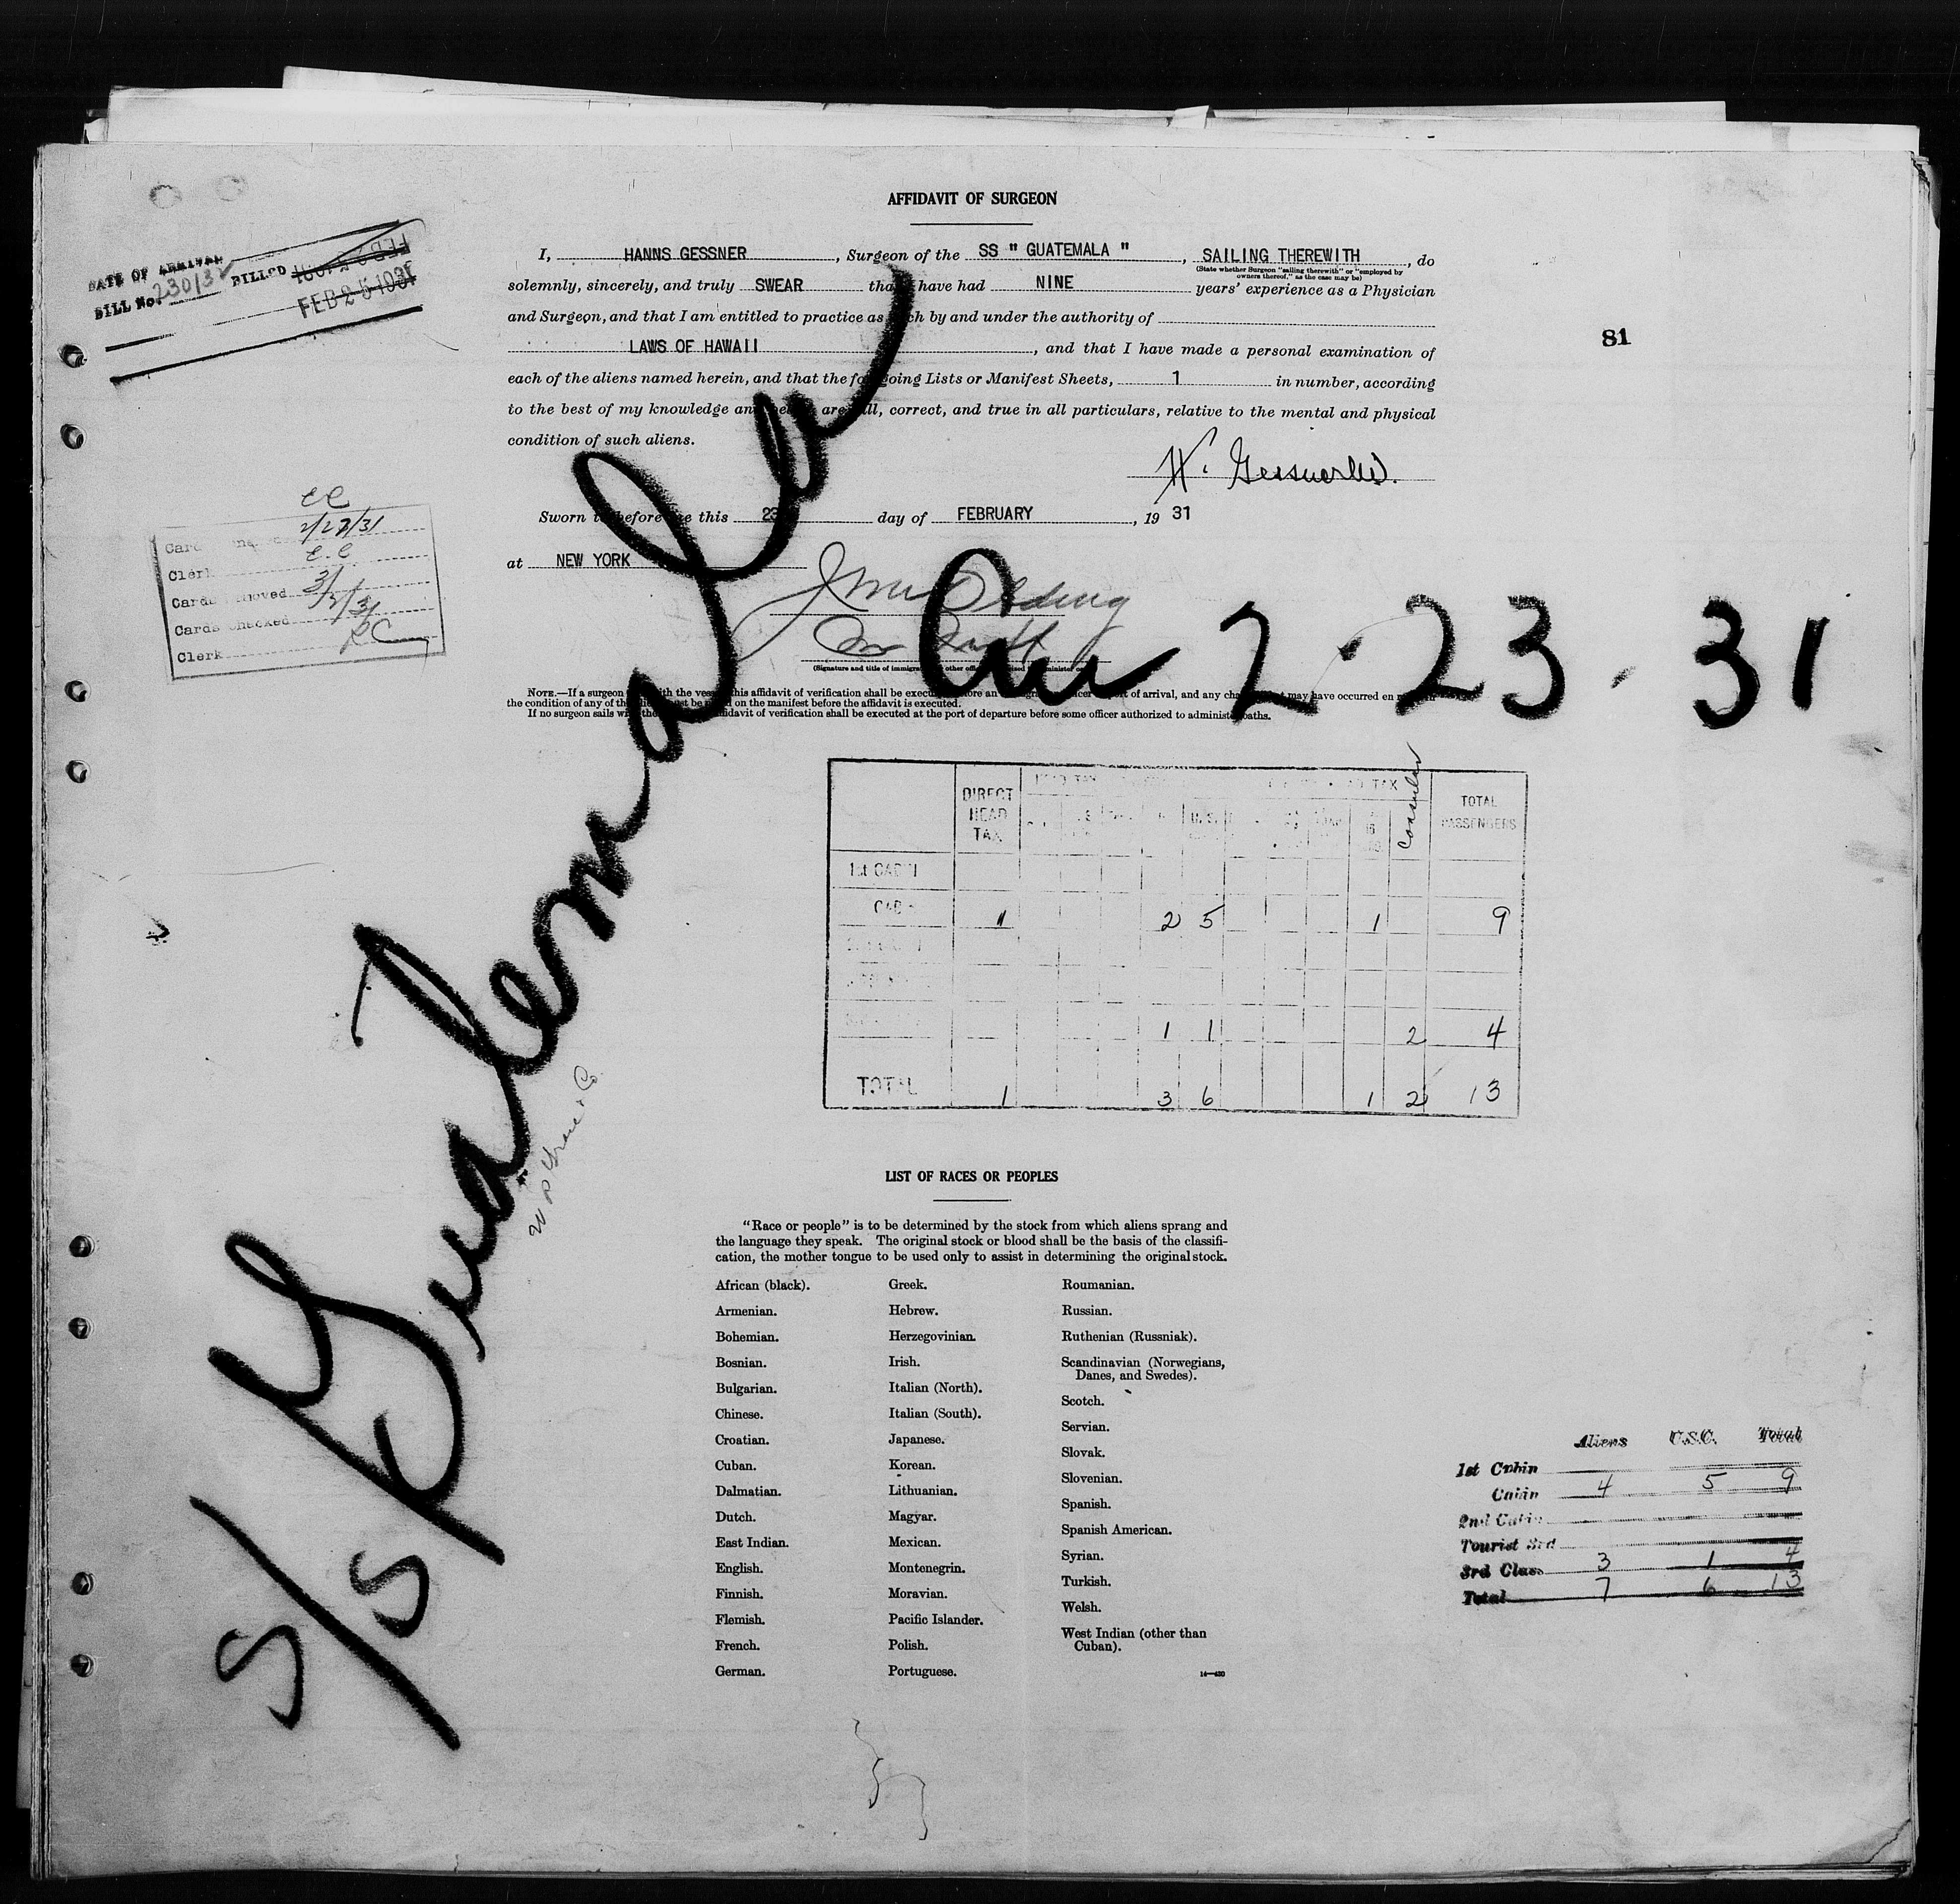 AFFIDAVIT OF SURGEON
I, HANNS GESSNER, Surgeon of the SS " GUATEMALA ", SAILING THEREWITH, do
(State whether Surgeon "sailing therewith" or "employed by
owners thereof," as the case may be)
solemnly, sincerely, and truly SWEAR that have had NINE years' experience as a Physician
and Surgeon, and that I am entitled to practice as such by and under the authority of
LAWS OF HAWAII, and that I have made a personal examination of
each of the aliens named herein, and that the foregoing Lists or Manifest Sheets, 1 in number, according
to the best of my knowledge and belief are full, correct, and true in all particulars, relative to the mental and physical
condition of such aliens.
H. Gessner
Sworn to before me this 23 day of FEBRUARY, 19 31
at NEW YORK
(Signature and title of immigrant other
NOTE.—If a surgeon with the vessel this affidavit of verification shall be executed before an officer port of arrival, and any change may have occurred en
the condition of any of the must be on the manifest before the affidavit is executed.
If no surgeon sails with the affidavit of verification shall be executed at the port of departure before some officer authorized to administer oaths.
DATE OF ARRIVAL
BILL No. 230/32 BILLED
FEB 25 1931
81
CC
2/27/31
Clerk C.C
Cards 3/
Cards Checked 3/2/31
Clerk RC
S/S Guatemala
Arr 2-23-31
W R Grace & Co.
DIRECT HEAD TAX
TAX
Consular
TOTAL PASSENGERS
1st CABIN
CABIN 1 2 5 1 9
1 1 2 4
TOTAL 1 3 6 1 2 13
LIST OF RACES OR PEOPLES
"Race or people" is to be determined by the stock from which aliens sprang and
the language they speak. The original stock or blood shall be the basis of the classifi-
cation, the mother tongue to be used only to assist in determining the original stock.
African (black).
Armenian.
Bohemian.
Bosnian.
Bulgarian.
Chinese.
Croatian.
Cuban.
Dalmatian.
Dutch.
East Indian.
English.
Finnish.
Flemish.
French.
German.
Greek.
Hebrew.
Herzegovinian.
Irish.
Italian (North).
Italian (South).
Japanese.
Korean.
Lithuanian.
Magyar.
Mexican.
Montenegrin.
Moravian.
Pacific Islander.
Polish.
Portuguese.
Roumanian.
Russian.
Ruthenian (Russniak).
Scandinavian (Norwegians,
Danes, and Swedes).
Scotch.
Servian.
Slovak.
Slovenian.
Spanish.
Spanish American.
Syrian.
Turkish.
Welsh.
West Indian (other than
Cuban).
14—430
Aliens U.S.C. Total
1st Cabin
Cabin 4 5 9
2nd Cabin
Tourist 3rd
3rd Class 3 1 4
Total 7 6 13